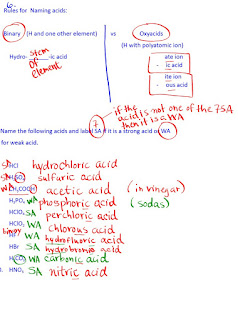 6.
Rules for Naming acids:
Binary (H and one other element) vs Oxyacids
(H with polyatomic ion)
Hydro- stem of element -ic acid
ate ion
- ic acid
ite ion
- ous acid
if the acid is not one of the 7 SA then it is a WA
7
Name the following acids and label SA if it is a strong acid or WA
for weak acid.
SA HCl hydrochloric acid
SA H₂SO₄ sulfuric acid
WA CH₃COOH acetic acid (in vinegar)
H₃PO₄ WA phosphoric acid (sodas)
HClO₄ SA perchloric acid
HClO₂ WA chlorous acid
binary HF WA hydrofluoric acid
HBr SA hydrobromic acid
H₂CO₃ WA carbonic acid
HNO₃ SA nitric acid